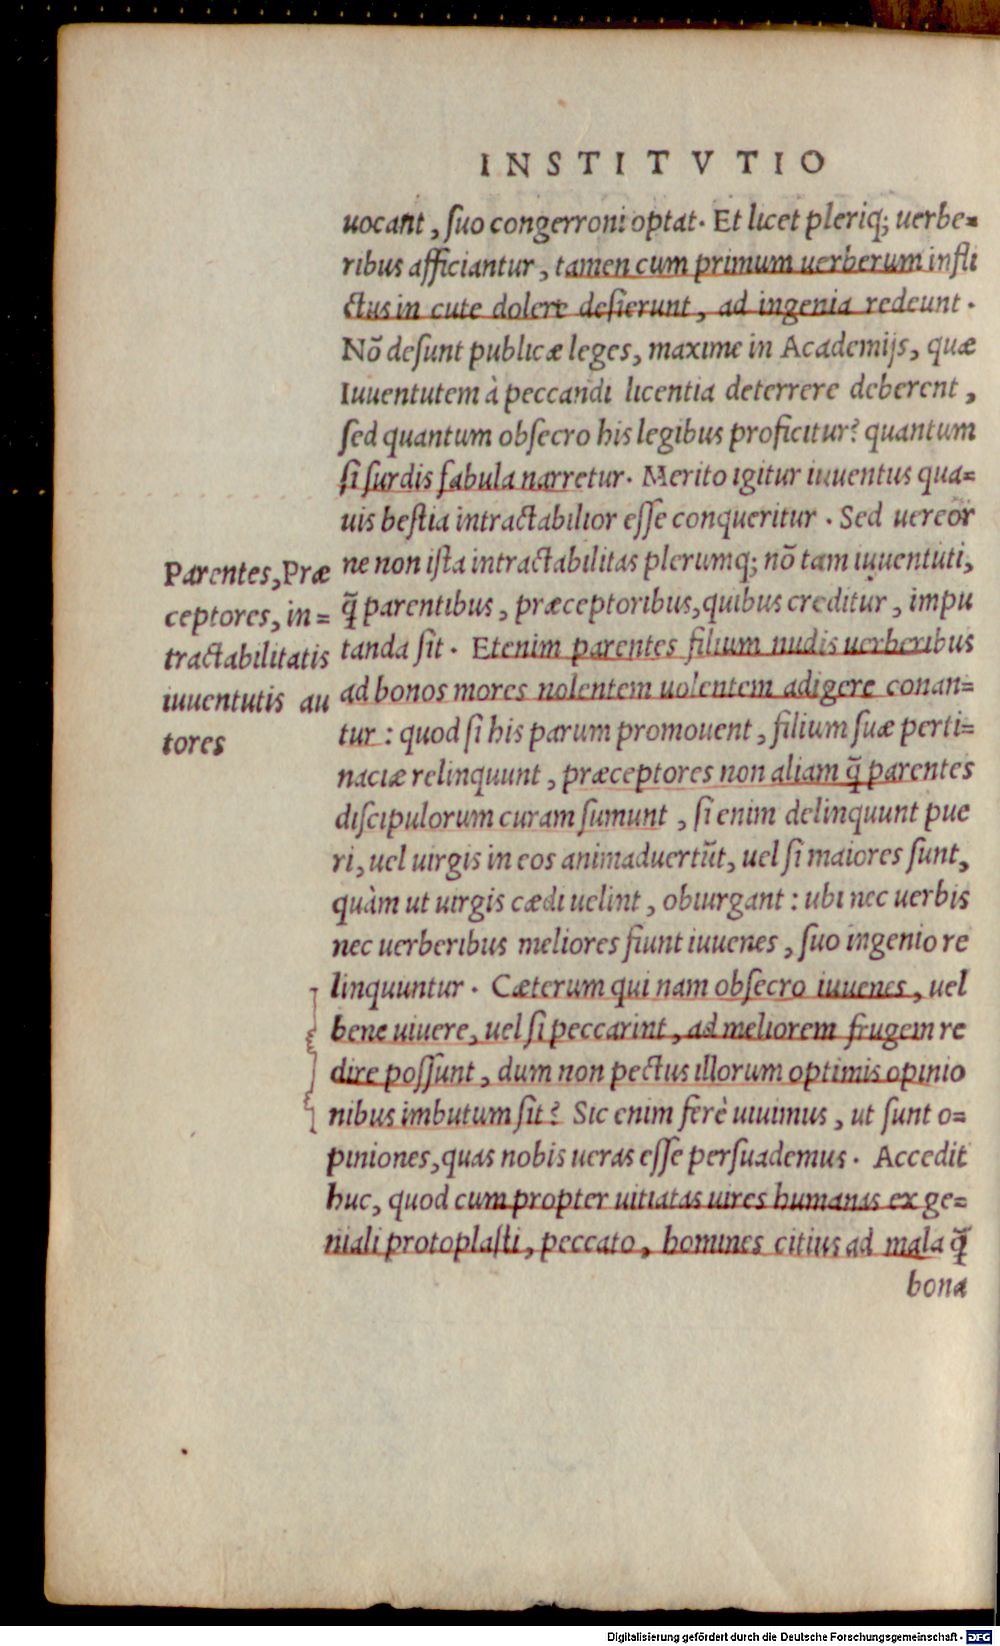 INSTITVTIO
uocant, ſuo congerroni optat. Et licet pleriq; uerbe=
ribus afficiantur, tamen cum primum uerberum infli
ctus in cute dolere deſierunt, ad ingenia redeunt.
Nō deſunt publicæ leges, maxime in Academijs, quæ
Iuuentutem à peccandi licentia deterrere deberent,
ſed quantum obſecro his legibus proficitur? quantum
ſi ſurdis fabula narretur. Merito igitur iuuentus qua=
uis beſtia intractabilior eſſe conqueritur. Sed uereor
ne non iſta intractabilitas plerumq; nō tam iuuentuti,
q̃ parentibus, præceptoribus, quibus creditur, impu
tanda ſit. Etenim parentes filium nudis uerberibus
ad bonos mores nolentem uolentem adigere conan=
tur: quod ſi his parum promouent, filium ſuæ perti=
naciæ relinquunt, præceptores non aliam q̃ parentes
diſcipulorum curam ſumunt, ſi enim delinquunt pue
ri, uel uirgis in eos animaduertũt, uel ſi maiores ſunt,
quàm ut uirgis cædi uelint, obiurgant: ubi nec uerbis
nec uerberibus meliores fiunt iuuenes, ſuo ingenio re
linquuntur. Cæterum qui nam obſecro iuuenes, uel
bene uiuere, uel ſi peccarint, ad meliorem frugem re
dire poſſunt, dum non pectus illorum optimis opinio
nibus imbutum ſit? Sic enim ferè uiuimus, ut ſunt o=
piniones, quas nobis ueras eſſe perſuademus. Accedit
huc, quod cum propter uitiatas uires humanas ex ge=
niali protoplaſti, peccato, homines citius ad mala q̃
bona
Parentes, Præ
ceptores, in=
tractabilitatis
iuuentutis au
tores
Digitalisierung gefördert durch die Deutsche Forschungsgemeinschaft - DFG